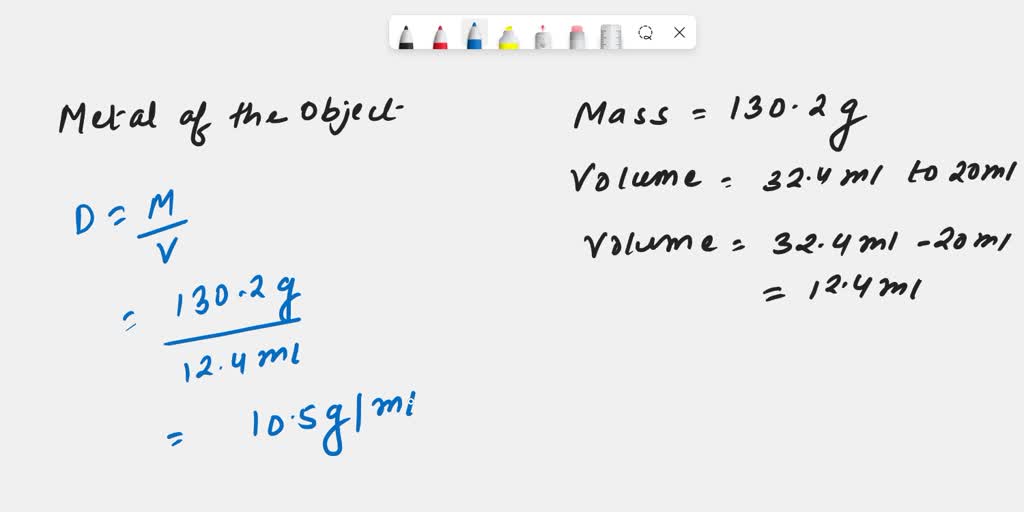 Metal of the Object
D = M
V
= 130.2 g
12.4 ml
= 10.5 g/ml
Mass = 130.2 g
Volume = 32.4 ml to 20 ml
Volume = 32.4 ml - 20 ml
= 12.4 ml